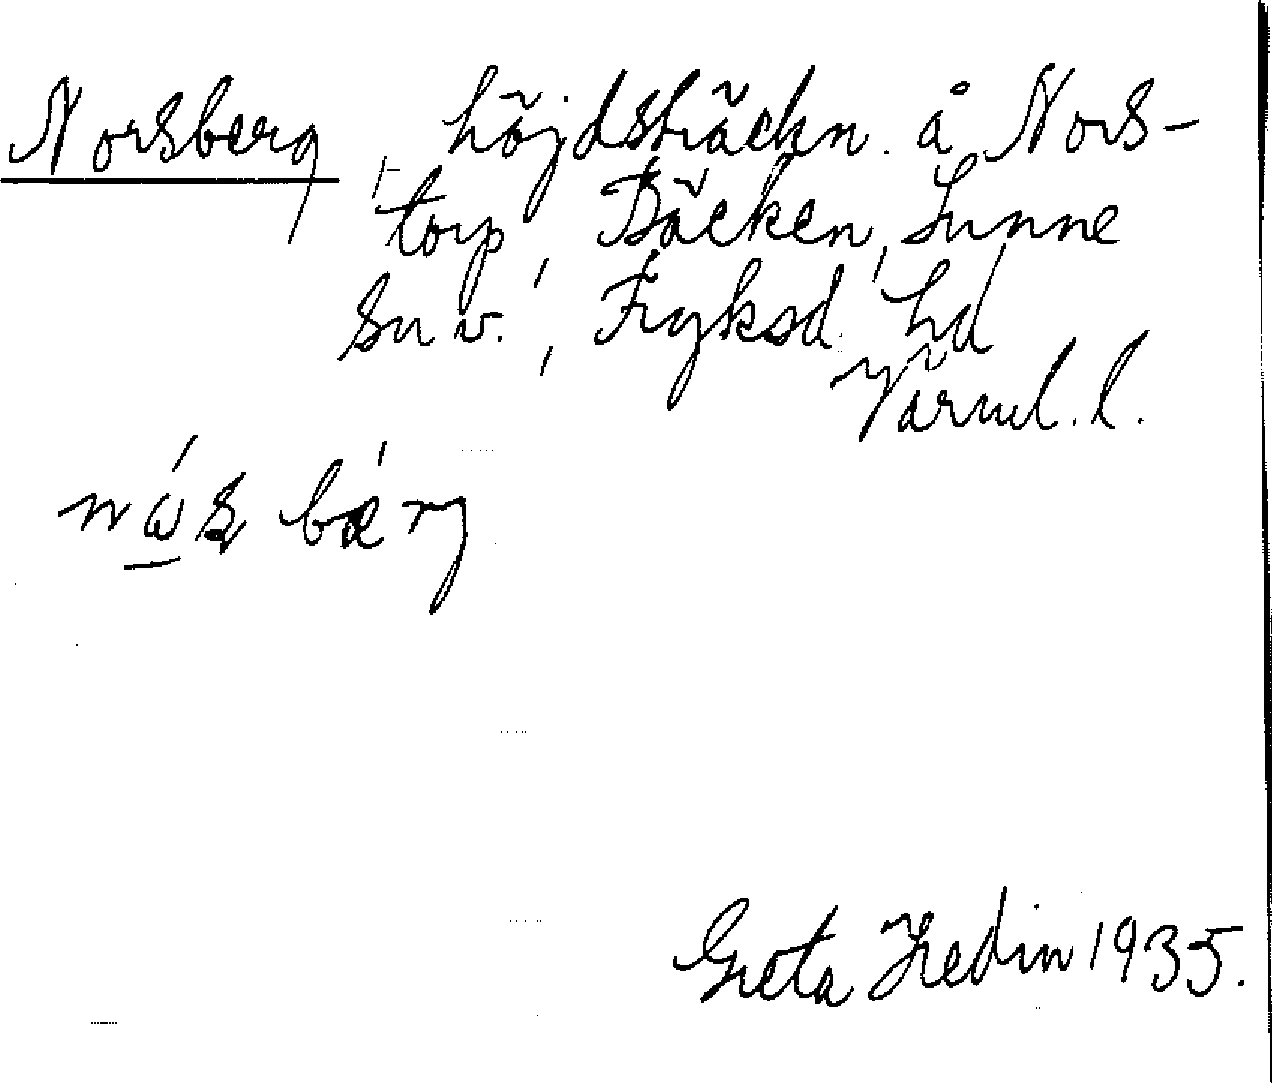 Norsberg, höjdsträckn. å Nors-
torp, Bäcken, Sunne
sn v., Fryksd. hd
Värml. l.
nɷ́ʂ bǽrg
Greta Hedin 1935.